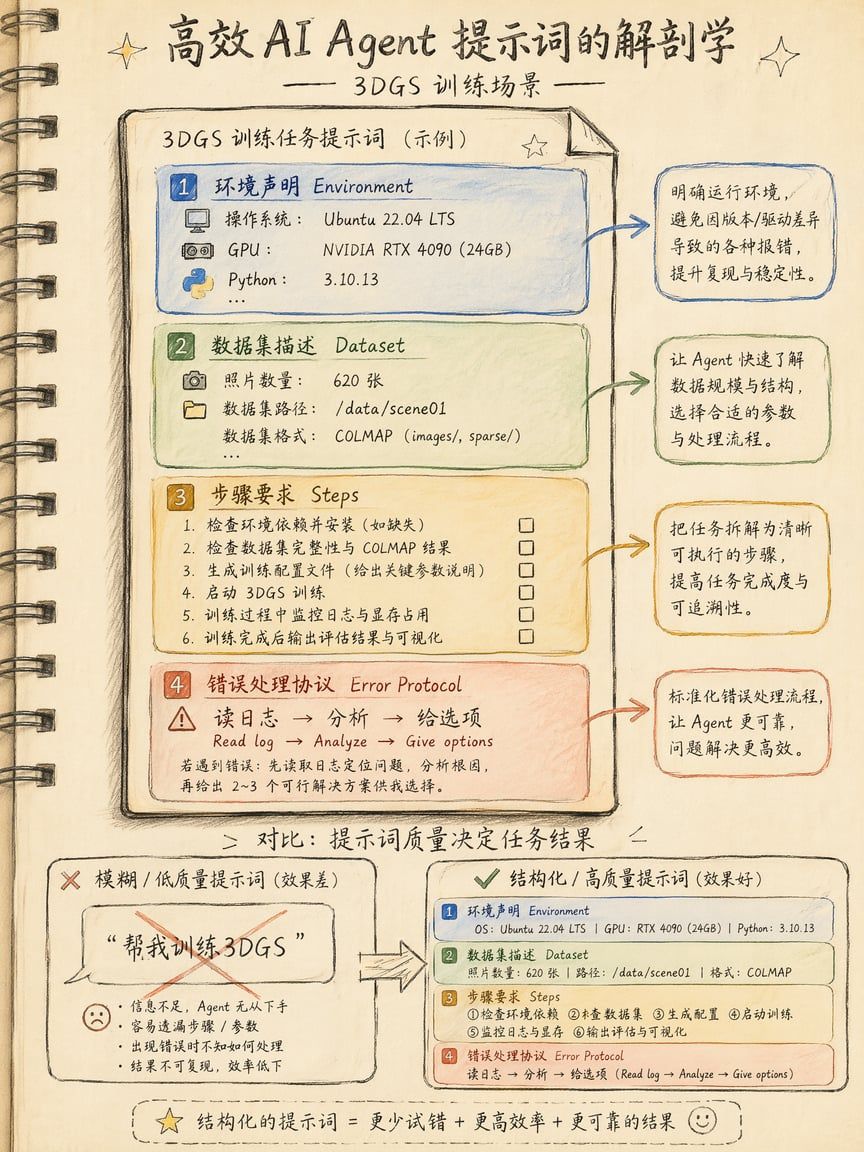 高效 AI Agent 提示词的解剖学
3DGS 训练场景
3DGS 训练任务提示词 (示例)
1 环境声明 Environment
操作系统: Ubuntu 22.04 LTS
GPU: NVIDIA RTX 4090 (24GB)
Python: 3.10.13
...
明确运行环境,
避免因版本/驱动差异
导致的各种报错,
提升复现与稳定性。
2 数据集描述 Dataset
照片数量: 620 张
数据集路径: /data/scene01
数据集格式: COLMAP (images/, sparse/)
...
让 Agent 快速了解
数据规模与结构,
选择合适的参数
与处理流程。
3 步骤要求 Steps
1. 检查环境依赖并安装 (如缺失)
2. 检查数据集完整性与 COLMAP 结果
3. 生成训练配置文件 (给出关键参数说明)
4. 启动 3DGS 训练
5. 训练过程中监控日志与显存占用
6. 训练完成后输出评估结果与可视化
把任务拆解为清晰
可执行的步骤,
提高任务完成度与
可追溯性。
4 错误处理协议 Error Protocol
读日志 → 分析 → 给选项
Read log → Analyze → Give options
若遇到错误: 先读取日志定位问题, 分析根因,
再给出 2~3 个可行解决方案供我选择。
标准化错误处理流程,
让 Agent 更可靠,
问题解决更高效。
对比: 提示词质量决定任务结果
模糊 / 低质量提示词 (效果差)
“帮我训练3DGS”
• 信息不足, Agent 无从下手
• 容易遗漏步骤 / 参数
• 出现错误时不知如何处理
• 结果不可复现, 效率低下
结构化 / 高质量提示词 (效果好)
1 环境声明 Environment
OS: Ubuntu 22.04 LTS | GPU: RTX 4090 (24GB) | Python: 3.10.13
2 数据集描述 Dataset
照片数量: 620 张 | 路径: /data/scene01 | 格式: COLMAP
3 步骤要求 Steps
①检查环境依赖 ②查数据集 ③生成配置 ④启动训练
⑤监控日志与显存 ⑥输出评估与可视化
4 错误处理协议 Error Protocol
读日志 → 分析 → 给选项 (Read log → Analyze → Give options)
结构化的提示词 = 更少试错 + 更高效率 + 更可靠的结果